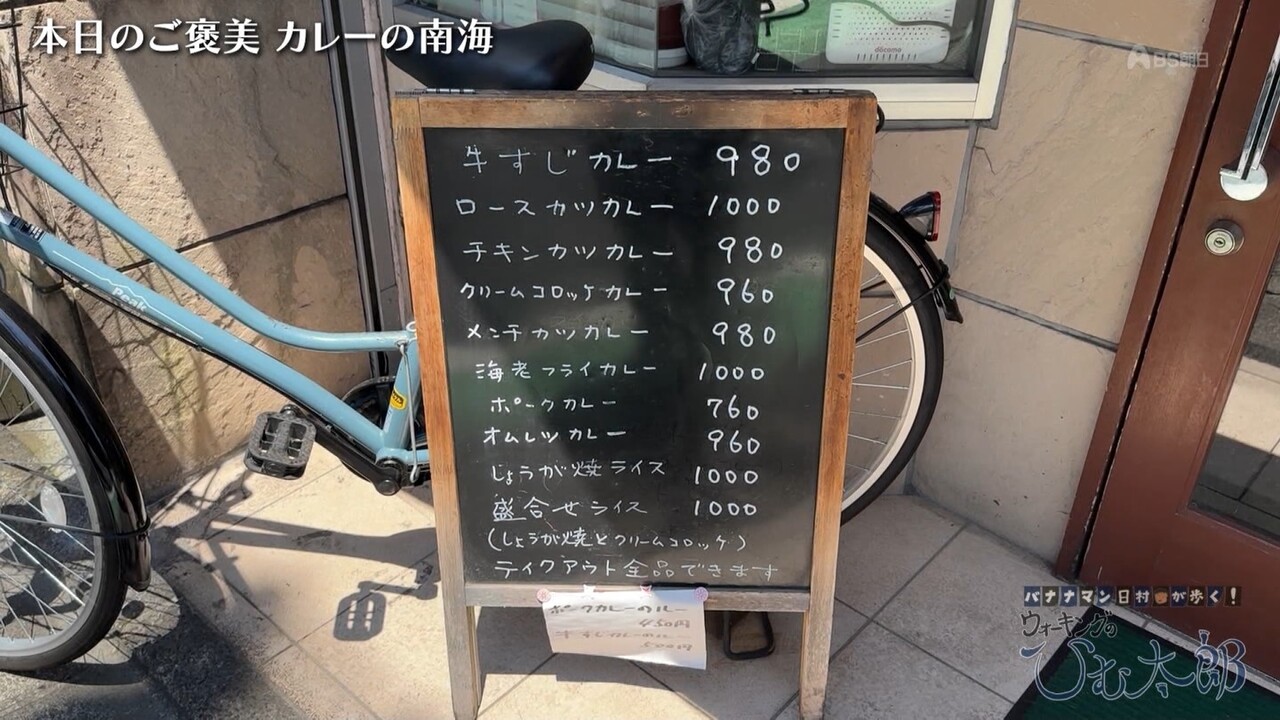 本日のご褒美 カレーの南海
BS朝日
docomo
牛すじカレー 980
ロースカツカレー 1000
チキンカツカレー 980
クリームコロッケカレー 960
メンチカツカレー 980
海老フライカレー 1000
ポークカレー 760
オムレツカレー 960
しょうが焼ライス 1000
盛合せライス 1000
(しょうが焼とクリームコロッケ)
テイクアウト全品できます
ポークカレーのルー
450円
牛すじカレーのルー
500円
Peak
バナナマン日村が歩く!
ウォーキングの
ひむ太郎